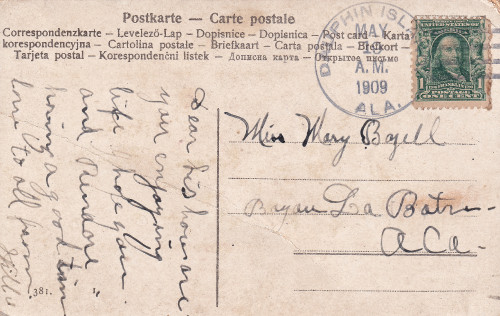 Postkarte — Carte postale
Correspondenzkarte — Levelező-Lap — Dopisnice — Dopisnica — Post card — Karta
korespondencyjna — Cartolina postale — Briefkaart — Carta postala — Brefkort —
Tarjeta postal — Korespondenční lístek — Дописна карта — Открытое письмо
DAUPHIN ISL
MAY
A.M.
1909
ALA.
POSTAGE
ONE CENT
Dear Sis how are
you enjoying
life hope you
and
having a good time
love to all from
Miss Mary Bozell
Bayou La Batre
ALA.
381.